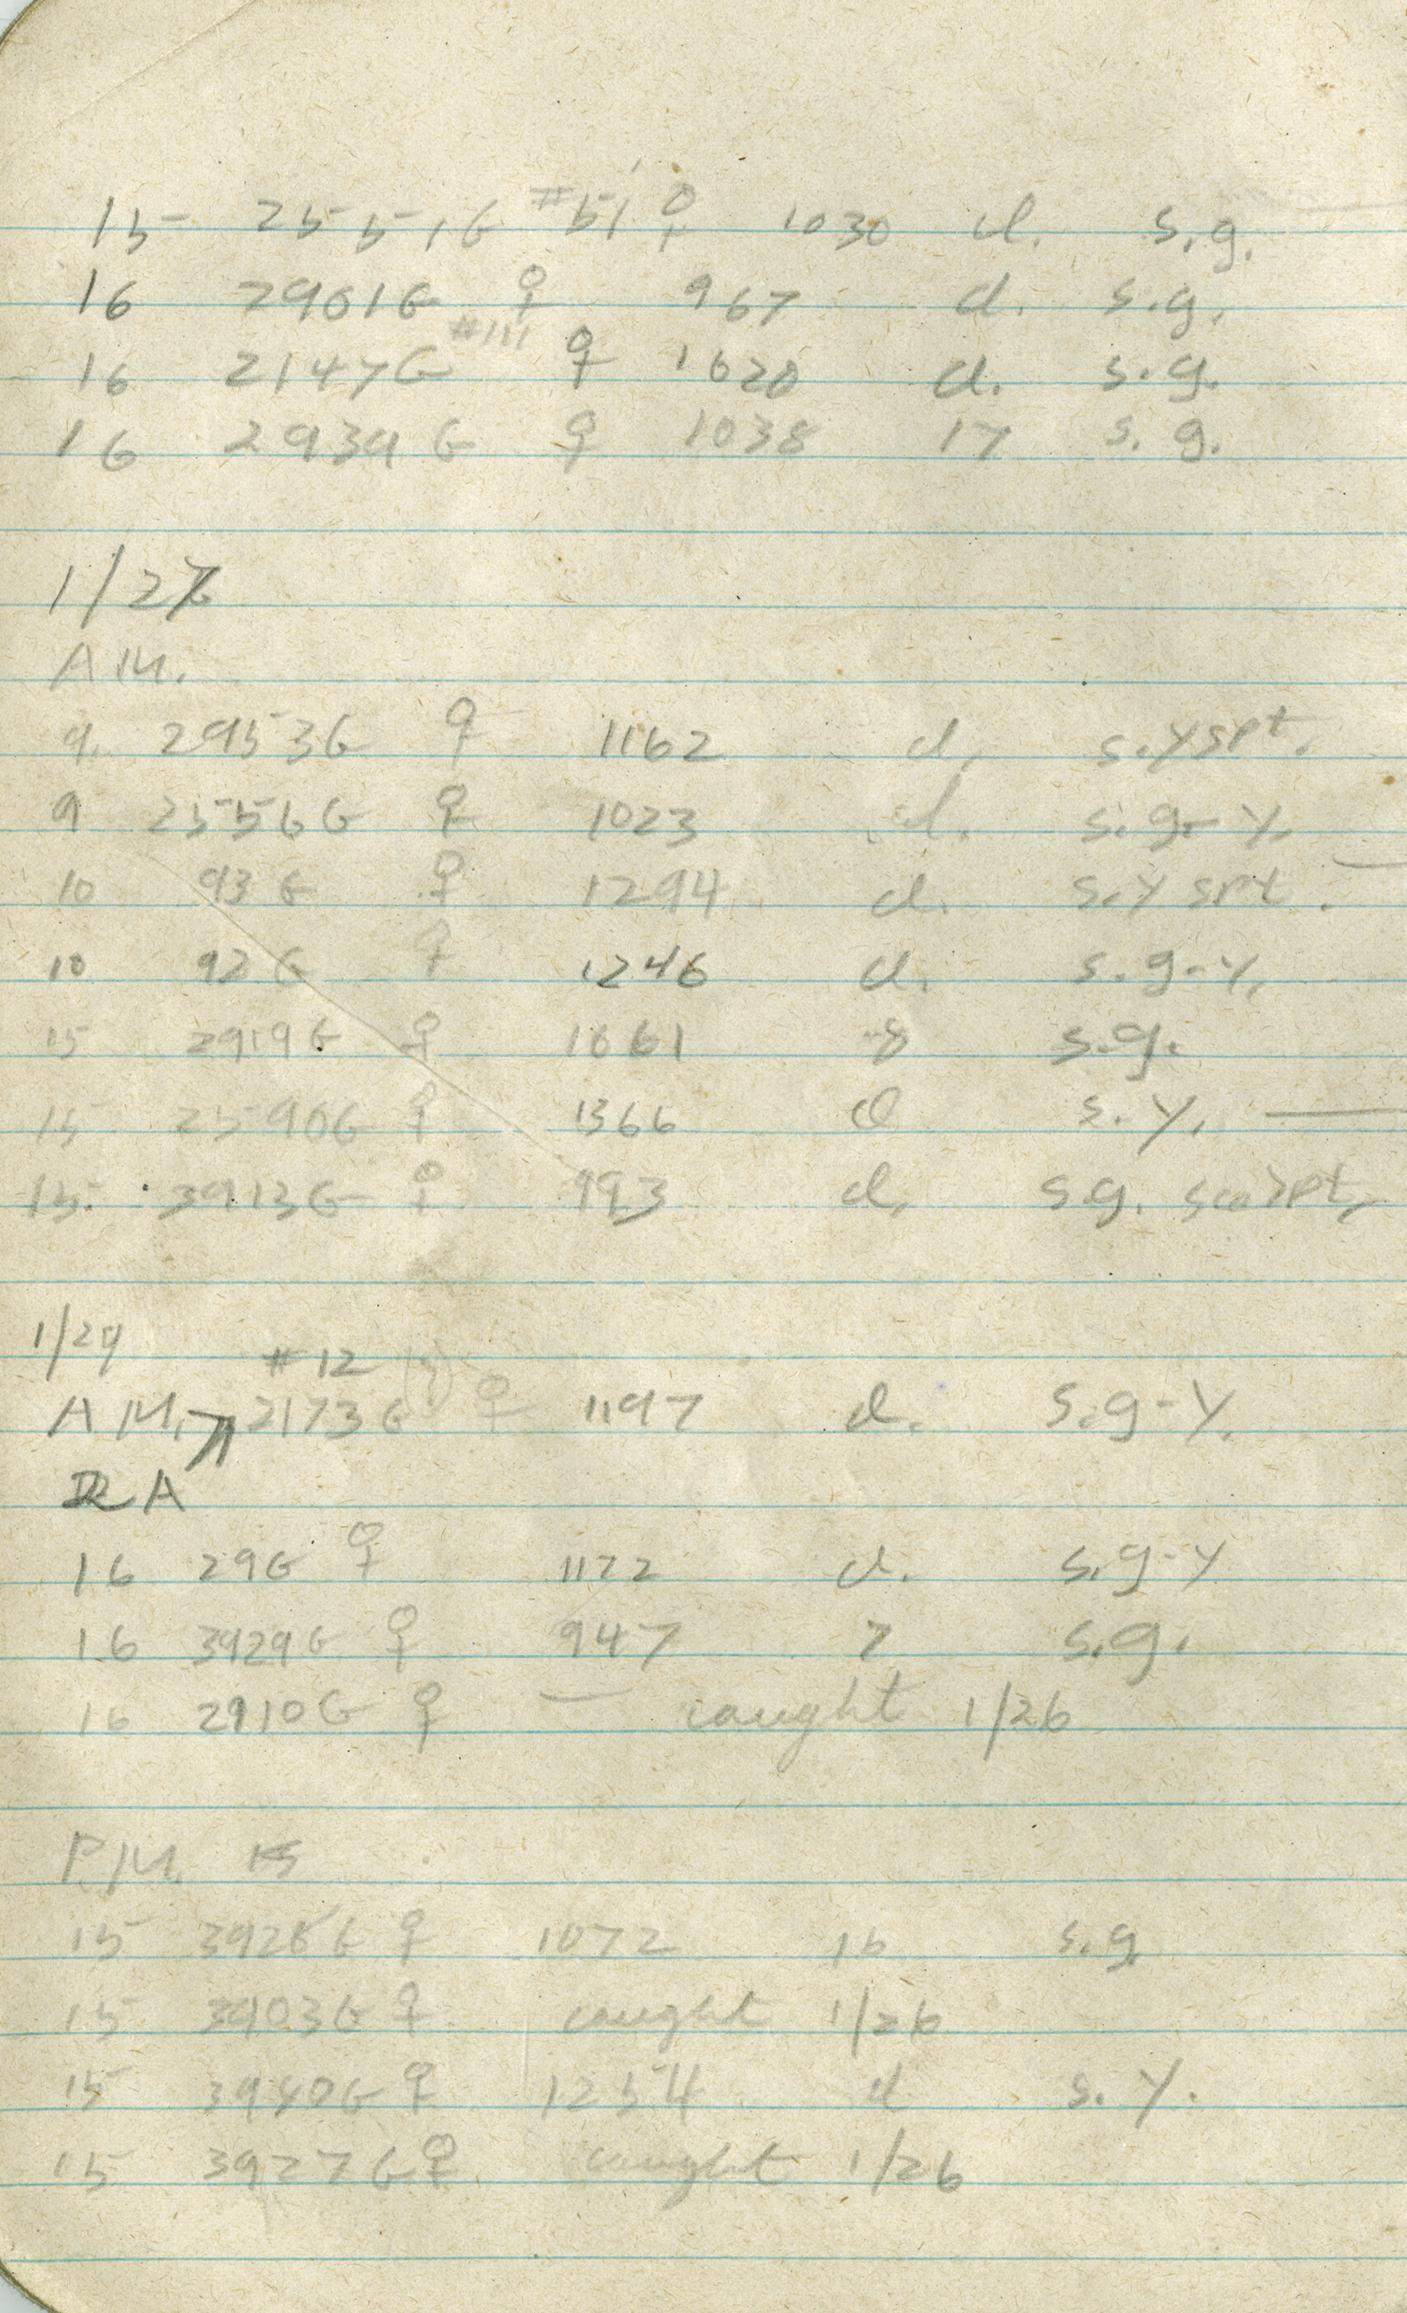 15 2551G #51 ♀ 1030 d. s.g.
16 2901G ♀ 967 d. s.g.
16 2147G #111 ♀ 1020 d. s.g.
16 2939G ♀ 1038 17 s.g.
1/27
A.M.
9. 2953G ♀ 1162 d. s.y spt.
9 2556G ♀ 1023 d. s.g-y.
10 93G ♀ 1294 d. s.y spt.
10 92G ♀ 1246 d. s.g-y.
15 2919G ♀ 1061 8 s.g.
15 2590G ♀ 1366 d s.y.
15. 3913G ♀ 993 d. s.g.
1/29
#12
A.M. 2173G ♀ 1197 d. s.g-y.
RA
16 29G ♀ 1122 d. s.g-y
16 3929G ♀ 947 7 s.g.
16 2910G ♀ — caught 1/26
P.M.
15 ♀ 1072 16 s.g.
15 3903G ♀ caught 1/26
15 3940G ♀ 1254 d s.y.
15 3927G ♀ caught 1/26